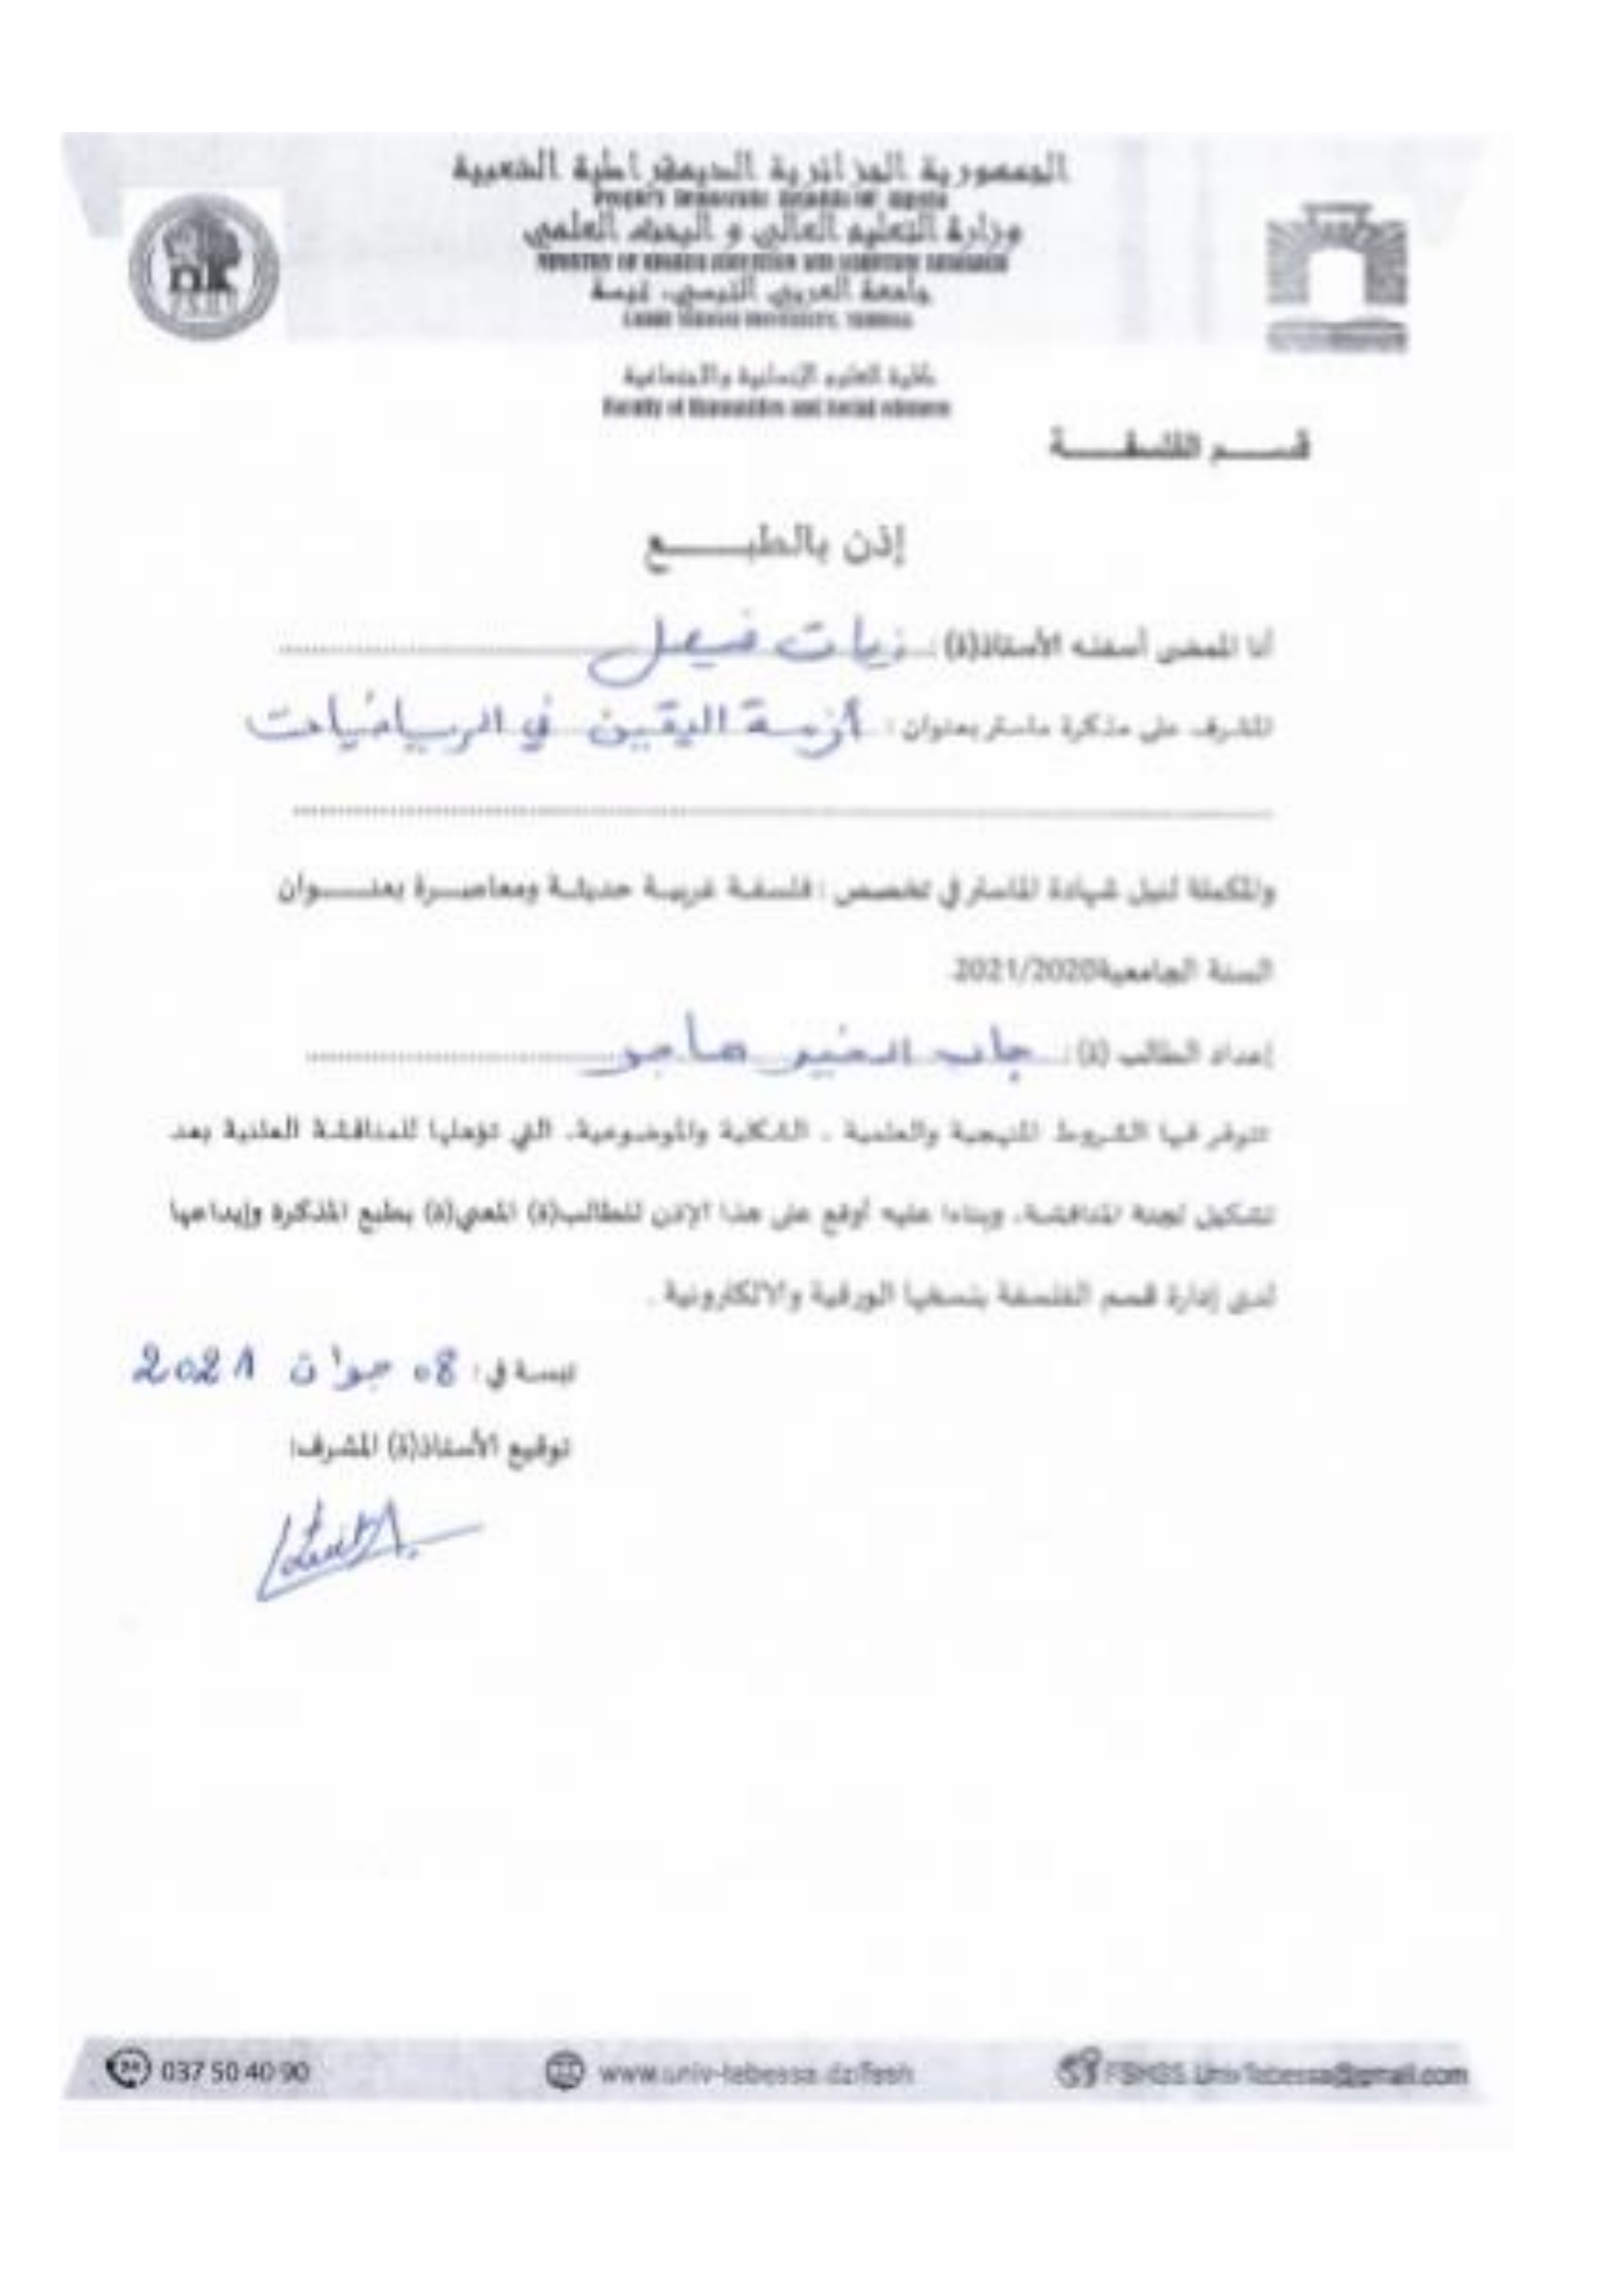 الجمهورية الجزائرية الديمقراطية الشعبية
وزارة التعليم العالي و البحث العلمي
MINISTRY OF HIGHER EDUCATION AND SCIENTIFIC RESEARCH
جامعة العربي التبسي، تبسة
LARBI TEBESSI UNIVERSITY, TEBESSA
كلية العلوم الإنسانية والاجتماعية
Faculty of Humanities and Social sciences
قســـم الفلسفـــة
إذن بالطبـــــع
أنا الممضي أسفله الأستاذ(ة) : زيات فيصل
المشرف على مذكرة ماستر بعنوان : أزمة اليقين في الرياضيات
والمكملة لنيل شهادة الماستر في تخصص : فلسفة غربية حديثة ومعاصرة بعنـــوان
السنة الجامعية2021/2020
إعداد الطالب (ة) : جاب الخير هاجر
تتوفر فيها الشروط المنهجية والعلمية ، الشكلية والموضوعية، التي تؤهلها للمناقشة العلنية بعد
تشكيل لجنة المناقشة، وبناءا عليه أوقع على هذا الإذن للطالب(ة) المعني(ة) بطبع المذكرة وإيداعها
لدى إدارة قسم الفلسفة بنسخها الورقية والالكترونية .
تبسة في : 08 جوان 2021
توقيع الأستاذ(ة) المشرف:
037 50 40 90
www.univ-tebessa.dz/fssh